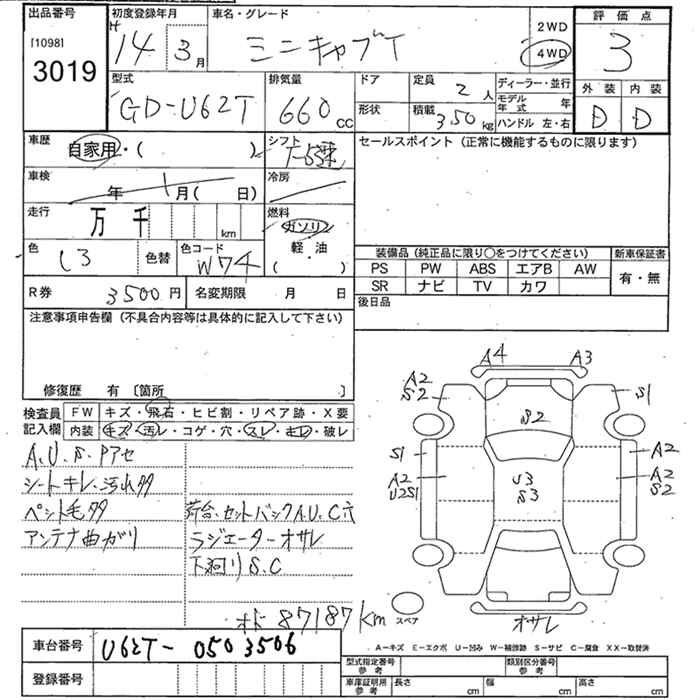 出品番号
[1098]
3019
初度登録年月
H
14 3月
車名・グレード
ミニキャブT
2WD
4WD
評価点
3
外装 内装
D D
型式
GD-U62T
排気量
660 CC
ドア
形状
定員
2人
積載
350 kg
ディーラー・並行
モデル年式 年
ハンドル 左・右
車歴
自家用・( )
シフト
F-5速
車検
年 1月( 日)
冷房
走行
万 千 km
燃料
ガソリン
軽・油
( )
色
しろ
色替
色コード
W74
R券
3500円
名変期限 月 日
セールスポイント (正常に機能するものに限ります)
装備品 (純正品に限り○をつけてください)
PS PW ABS エアB AW
SR ナビ TV カワ
新車保証書
有・無
後日品
注意事項申告欄 (不具合内容等は具体的に記入して下さい)
修復歴 有 〔箇所 〕
検査員記入欄
FW キズ・飛石・ヒビ割・リペア跡・X要
内装 キズ・汚レ・コゲ・穴・スレ・キレ・破レ
A.U.S.Pアセ
シートキレ.汚れ多
ペット毛多
アンテナ曲がり
荷台.セットバックA.U.C穴
ラジエーターオサレ
下廻りS.C
オド 87187km
A4 A3
A2
S2
S1
S2
S1
A2
A2
U2S1
U3
S3
A2
S2
スペア
オサレ
A-キズ E-エクボ U-凹み W-補修跡 S-サビ C-腐食 XX-取替済
車台番号
U62T-0503506
登録番号
型式指定番号 参考
類別区分番号 参考
車庫証明用 参考
長さ cm
幅 cm
高さ cm